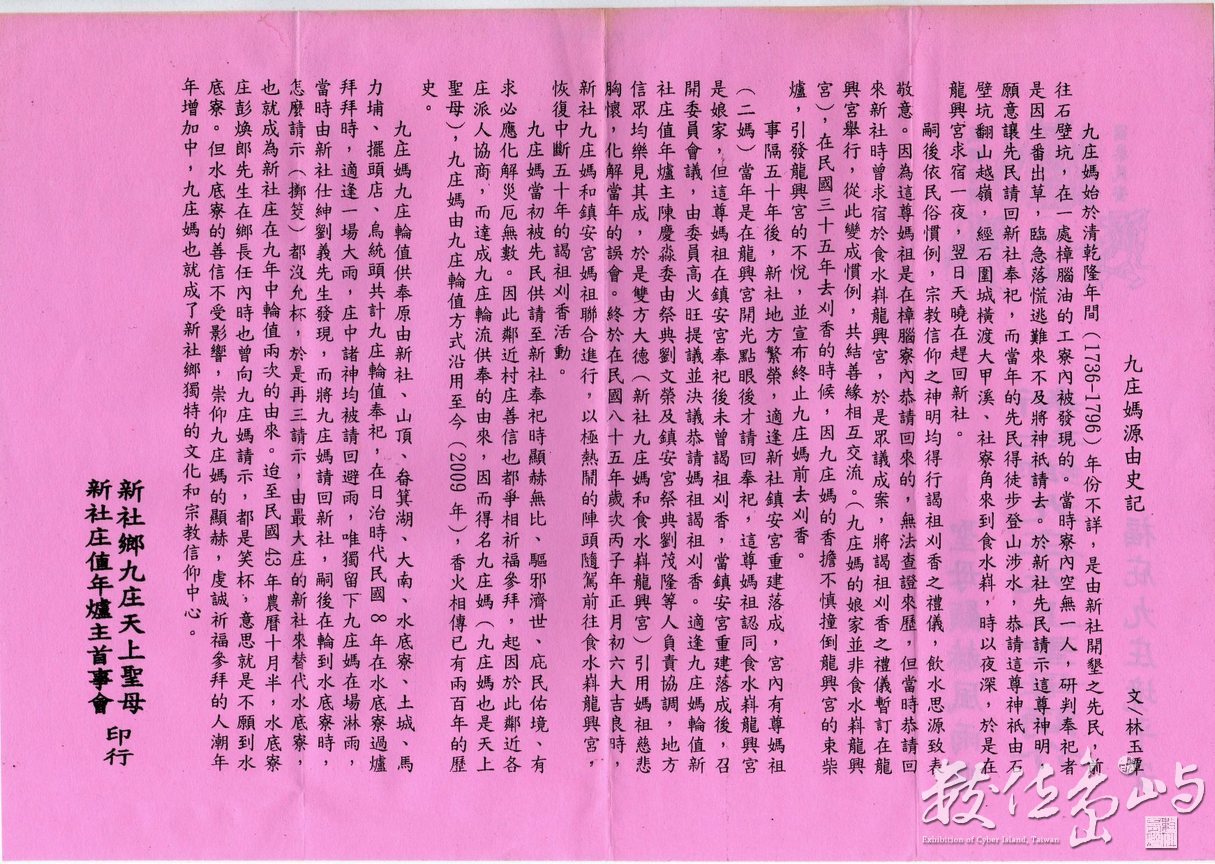 九庄媽源由史記
文／林玉譚
九庄媽始於清乾隆年間（1736-1796）年份不詳，是由新社開墾之先民，前
往石壁坑，在一處樟腦油的工寮內被發現的。當時寮內空無一人，研判奉祀者
是因生番出草，臨急落慌逃難來不及將神祇請去。於新社先民請示這尊神明，
願意讓先民請回新社奉祀，而當年的先民得徒步登山涉水，恭請這尊神祇由石
壁坑翻山越嶺，經石圍城橫渡大甲溪、社寮角來到食水嵙，時以夜深，於是在
龍興宮求宿一夜，翌日天曉在趕回新社。
嗣後依民俗慣例，宗教信仰之神明均得行謁祖刈香之禮儀，飲水思源致表
敬意。因為這尊媽祖是在樟腦寮內恭請回來的，無法查證來歷，但當時恭請回
來新社時曾求宿於食水嵙龍興宮，於是眾議成案，將謁祖刈香之禮儀暫訂在龍
興宮舉行，從此變成慣例，共結善緣相互交流。（九庄媽的娘家並非食水嵙龍興
宮），在民國三十五年去刈香的時候，因九庄媽的香擔不慎撞倒龍興宮的束柴
爐，引發龍興宮的不悅，並宣布終止九庄媽前去刈香。
事隔五十年後，新社地方繁榮，適逢新社鎮安宮重建落成，宮內有尊媽祖
（二媽）當年是在龍興宮開光點眼後才請回奉祀，這尊媽祖認同食水嵙龍興宮
是娘家，但這尊媽祖在鎮安宮奉祀後未曾謁祖刈香，當鎮安宮重建落成後，召
開委員會議，由委員高火旺提議並決議恭請媽祖謁祖刈香。適逢九庄媽輪值新
社庄值年爐主陳慶淼委由祭典劉文榮及鎮安宮祭典劉茂隆等人負責協調，地方
信眾均樂見其成，於是雙方大德（新社九庄媽和食水嵙龍興宮）引用媽祖慈悲
胸懷，化解當年的誤會。終於在民國八十五年歲次丙子年正月初六大吉良時，
新社九庄媽和鎮安宮媽祖聯合進行，以極熱鬧的陣頭隨駕前往食水嵙龍興宮，
恢復中斷五十年的謁祖刈香活動。
九庄媽當初被先民供請至新社奉祀時顯赫無比、驅邪濟世、庇民佑境、有
求必應化解災厄無數。因此鄰近村庄善信也都爭相祈福參拜，起因於此鄰近各
庄派人協商，而達成九庄輪流供奉的由來，因而得名九庄媽（九庄媽也是天上
聖母），九庄媽由九庄輪值方式沿用至今（2009 年），香火相傳已有兩百年的歷
史。
九庄媽九庄輪值供奉原由新社、山頂、畚箕湖、大南、水底寮、土城、馬
力埔、擺頭店、鳥統頭共計九庄輪值奉祀，在日治時代民國 8 年在水底寮過爐
拜拜時，適逢一場大雨，庄中諸神均被請回避雨，唯獨留下九庄媽在場淋雨，
當時由新社仕紳劉義先生發現，而將九庄媽請回新社，嗣後在輪到水底寮時，
怎麼請示（擲筊）都沒允杯，於是再三請示，由最大庄的新社來替代水底寮，
也就成為新社庄在九年中輪值兩次的由來。迨至民國 43 年農曆十月半，水底寮
庄彭煥郎先生在鄉長任內時也曾向九庄媽請示，都是笑杯，意思就是不願到水
底寮。但水底寮的善信不受影響，崇仰九庄媽的顯赫，虔誠祈福參拜的人潮年
年增加中，九庄媽也就成了新社鄉獨特的文化和宗教信仰中心。
新社鄉九庄天上聖母
新社庄值年爐主首事會 印行
數位島嶼
Exhibition of Cyber Island, Taiwan